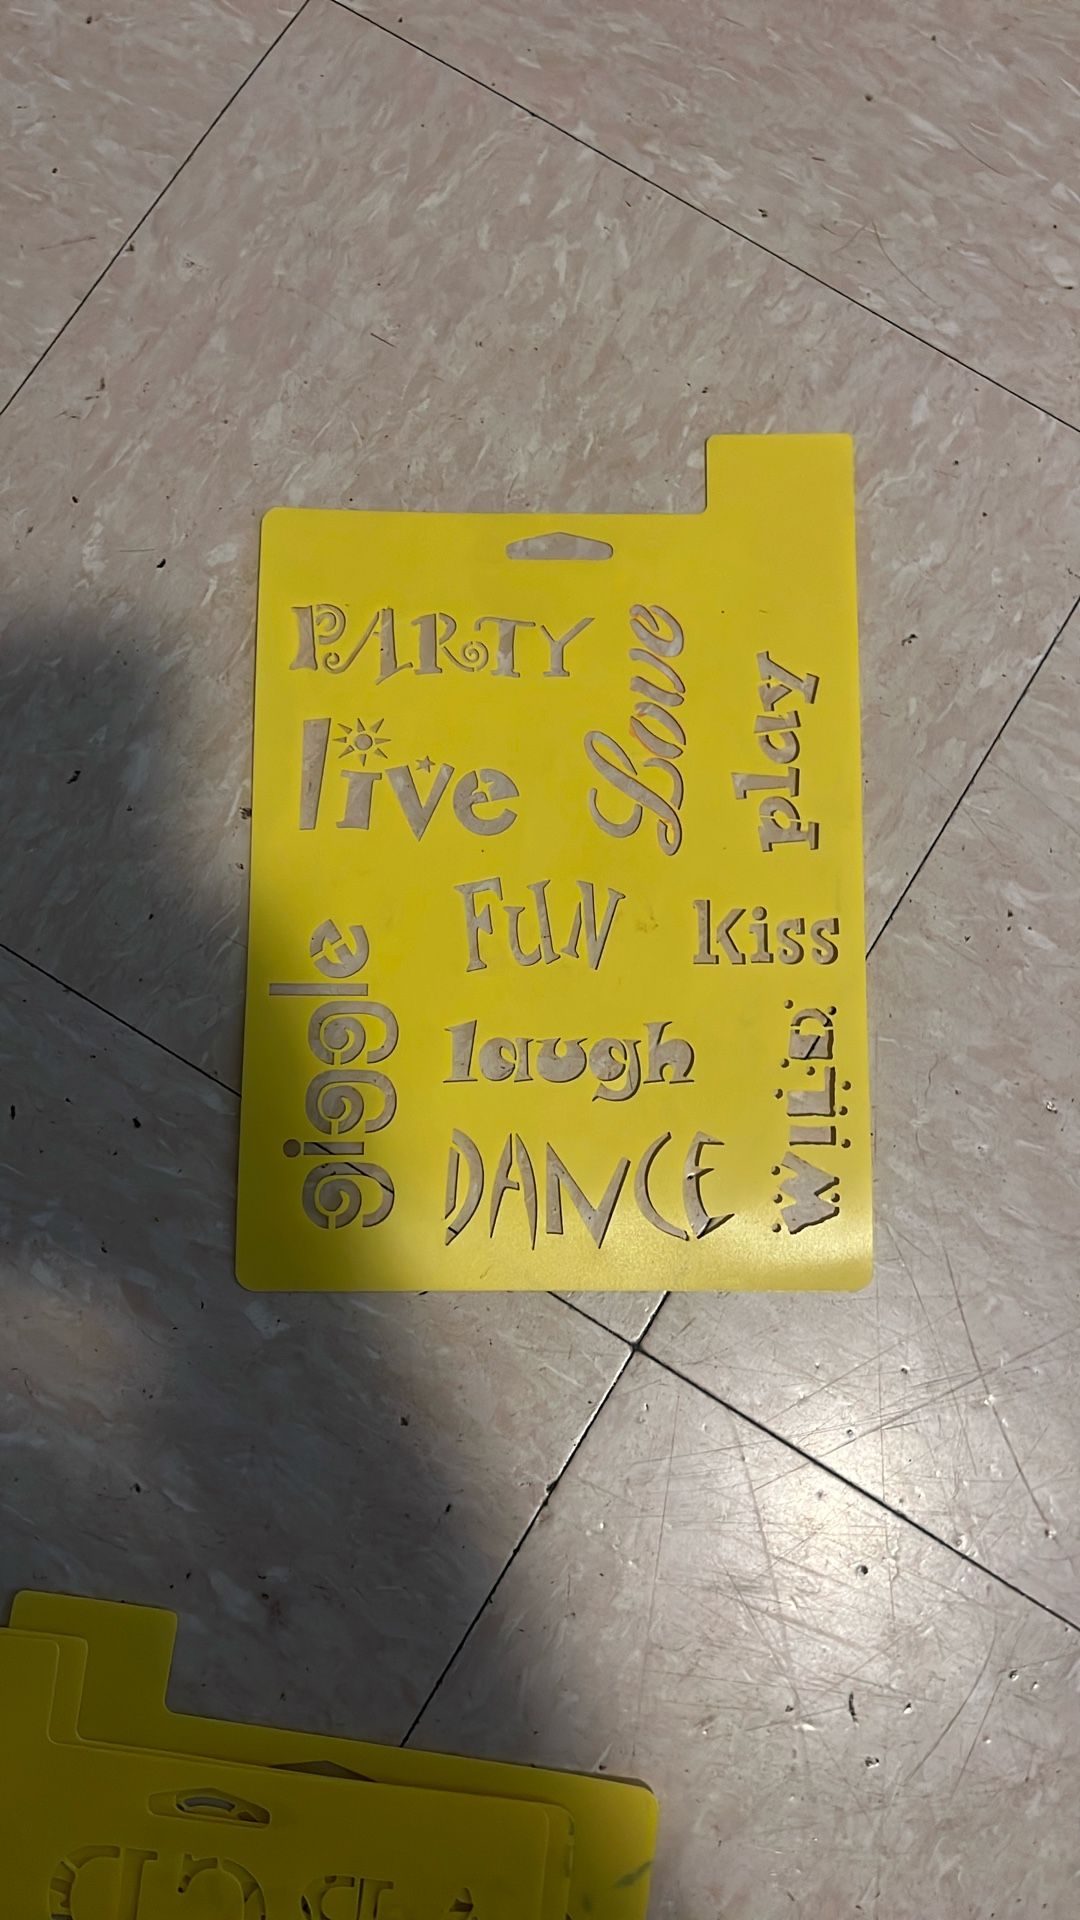 PARTY
Love
play
live
FUN
kiss
giggle
laugh
WILD
DANCE